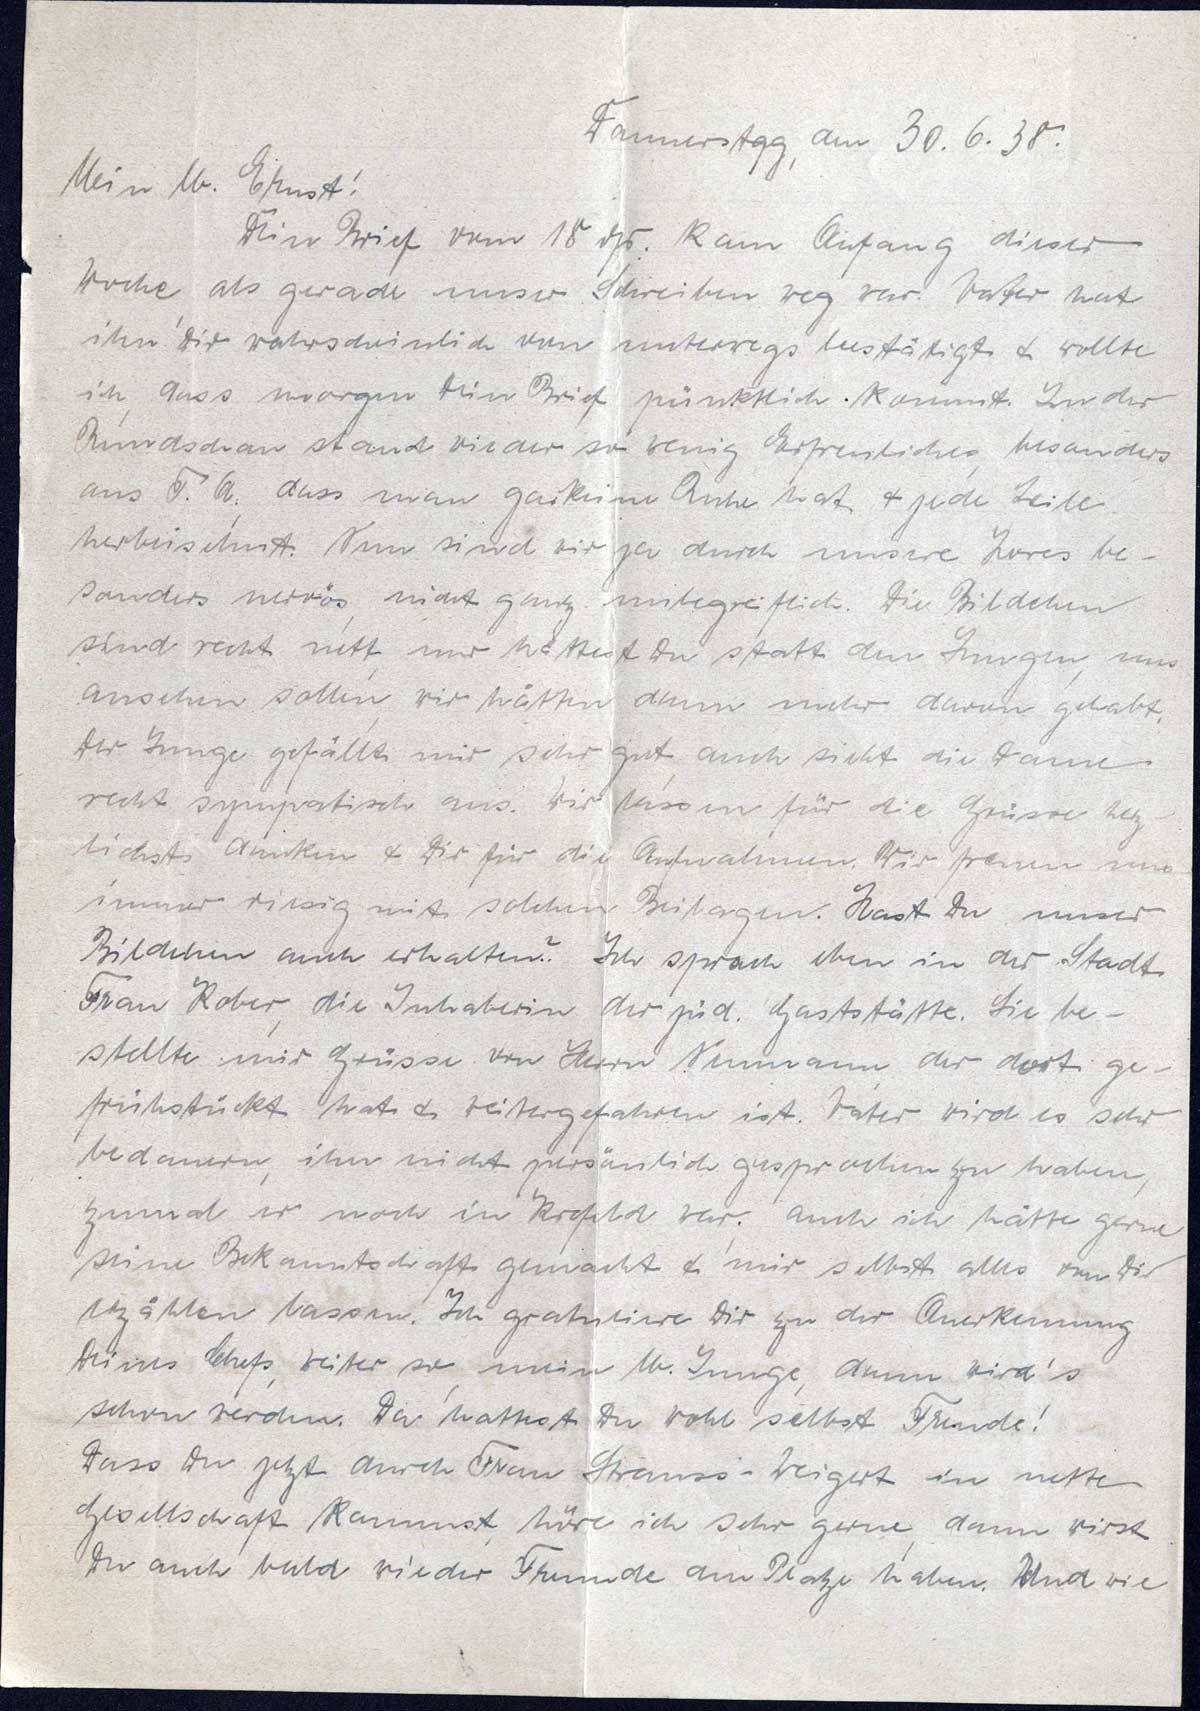 Donnerstag, den 30. 6. 38.
Mein lb. Ernst!
Dein Brief vom 18 ds. kam Anfang dieser
Woche, als gerade unser Schreiben weg war. Vater hat
ihn Dir wahrscheinlich von unterwegs bestätigt & wollte
ich, dass morgen Dein Brief pünktlich kommt. In der
Rundschau stand wieder so wenig Erfreuliches, besonders
aus . A. dass man garkeine Ruhe hat & jede Zeile
herbeisehnt. Nun sind wir ja durch unsere Zores be-
sonders nervös, nicht ganz unbegreiflich. Die Bildchen
sind recht nett, nur hättest Du statt den Jungen, uns
ansehen sollen, wir hätten dann mehr davon gehabt.
Der Junge gefällt mir sehr gut, auch sieht die Dame
recht sympatisch aus. Wir lassen für die Grüsse herz-
lichst danken & Dir für die Aufnahmen. Wir freuen uns
immer riesig mit solchen Beilagen. Hast Du unser
Bildchen auch erhalten? Ich sprach eben in der Stadt
Frau Kober, die Inhaberin der jüd. Gaststätte. Sie be-
stellte mir Grüsse von Herrn Neumann, der dort ge-
frühstückt hat & weitergefahren ist. Vater wird es sehr
bedauern, ihn nicht persönlich gesprochen zu haben,
zumal er noch in Krefeld war. Auch ich hätte gerne
seine Bekanntschaft gemacht & mir selbst alles von Dir
erzählen lassen. Ich gratuliere Dir zu der Anerkennung
Deines Chefs, weiter so mein lb. Junge, dann wird's
schon werden. Da hattest Du wohl selbst Freude!
Dass Du jetzt durch Frau Strauss-Weigert in nette
Gesellschaft kommst, höre ich sehr gerne, dann wirst
Du auch bald wieder Freunde am Platze haben. Und wie